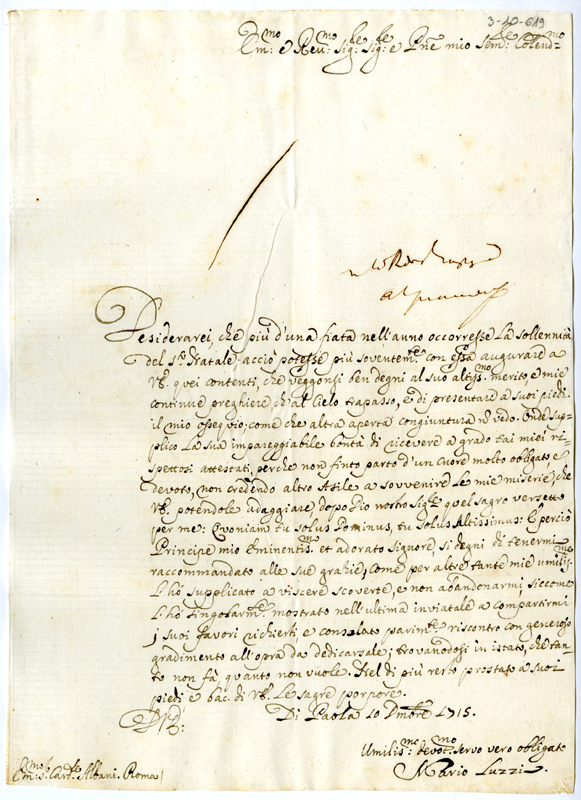 3-10-619
Em:mo e Reu:mo Sig:re Sig:re e Pne mio Sem:re Colend:mo
Desiderarei, che più d'una fiata nell'anno occorresse La sollennità
del s.to Natale acciò potesse più soventem.te con essa augurare a
V.E. quei contenti, che veggonsi ben degni al suo altiss.mo merito, e mie
continue preghiere ch'al Cielo trapasso, e di presentare a suoi piedi
il mio ossequio; come che altra aperta congiuntura n vedo. Onde sup=
plico La sua impareggiabile bontà di ricevere a grado tai miei ri=
spettosi attestati, perche non finto parto d'un Cuore molto obligato e
devoto, non credendo altro Asile a souvenire Le mie miserie, che
V.E. potendole adaggiare, dopo Dio nostro Sig.re quel sagro versetto
per me: Quoniam tu solus Dominus, tu Solus Altissimus: E perciò
Principe mio Eminentis.mo et adorato Signore si degni di tenermi
raccommandato alle sue grazie, Come per altre tante mie umilis.me
L'hò supplicato a viscere scoverte, e non abandonarmi, siccome
L'hò singolarm.te mostrato nell'ultima inviatale a compartirmi
i suoi favori richierti, e consolato parim.te riscontro con generoso
gradimento all'opra da dedicarsale; trovandosi in istato, che tan=
to non fà, quanto non vuole. Nel di più resto prostato a suoi
piedi e bac. di V.E. Le sagre porpore.
Di Paola 10 Dmbre 1715.
Umilis:mo devot:mo servo vero obligato
Mario Luzzi
Em:mo S.r Card.le Albani. Roma